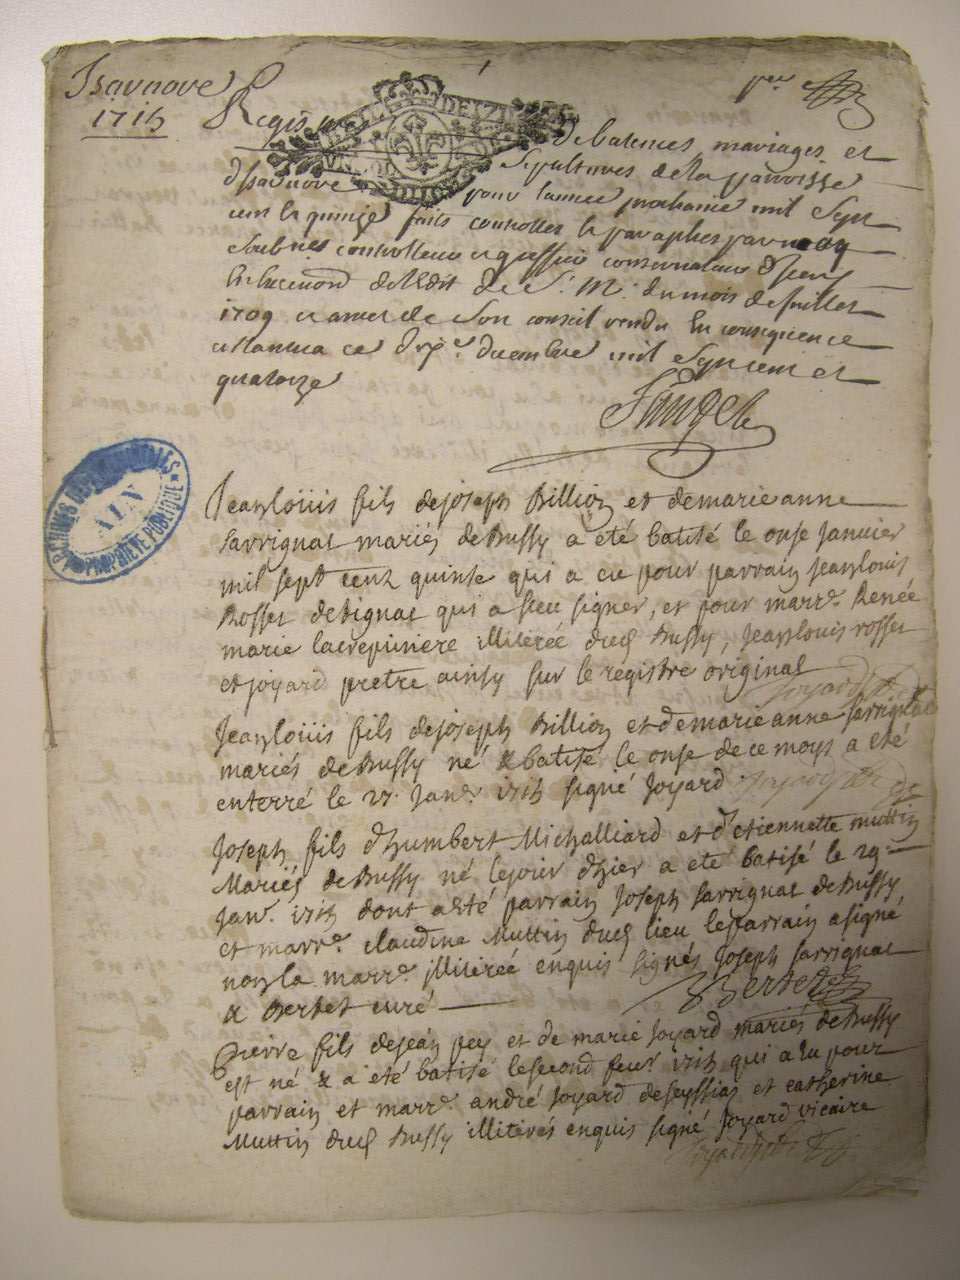 Isarnore
1715
Registre
de batemes, mariages et
Sepultures de la parroisse
d'Isarnore pour l'année prochaine mil Sept
cent et quinze
1709
de Son conseil rendu En consequence
ce decembre mil Sept cent et
quatorze
ARCHIVES DEPARTEMENTALES
AIN
PROPRIÉTÉ PUBLIQUE
Jean louiis fils de joseph Billion et de marie anne
Sarrignat mariés de Bussy a été batisé le onse Janvier
mil sept cent quinse qui a eu pour parrain jean louis
Rosset de Dignat qui a sceu signer, et pour marr.e Renée
marie lacrepiniere illiterée dud Bussy, Jean louis rosset
et joyard pretre ainsy sur le registre original
Joyard
Jean louiis fils de joseph Billion et de marie anne Sarrignat
mariés de Bussy né & batisé le onse de ce moys a eté
enterré le 27. Janr. 1715 signé Joyard
Joseph fils d'humbert Michalliard et d'etiennette muttin
Mariés de Bussy né le jour d'hier a eté batisé le 29.
Janr. 1715 dont a eté parrain Joseph Sarrignat de Bussy
et marr.e claudine Muttin dud lieu le parrain a signé
non la marr.e illiterée enquis signés Joseph Sarrignat
& Bertet curé
Bertet
Pierre fils de jean pey et de marie Joyard mariés de Bussy
est né & a été batisé le second feur. 1715 qui a eu pour
parrain et marr.e andré Joyard de seyssiat et catherine
Muttin dud Bussy illiterés enquis signé Joyard vicaire